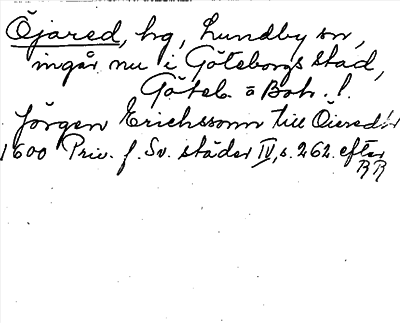 Öjared, hg, Lundby sn,
ingår nu i Göteborgs stad,
Göteb. o Boh. l.
Jörgen Erichssonn till Öieredh
1600 Priv. f. Sv. städer IV, s. 262. efter
RR